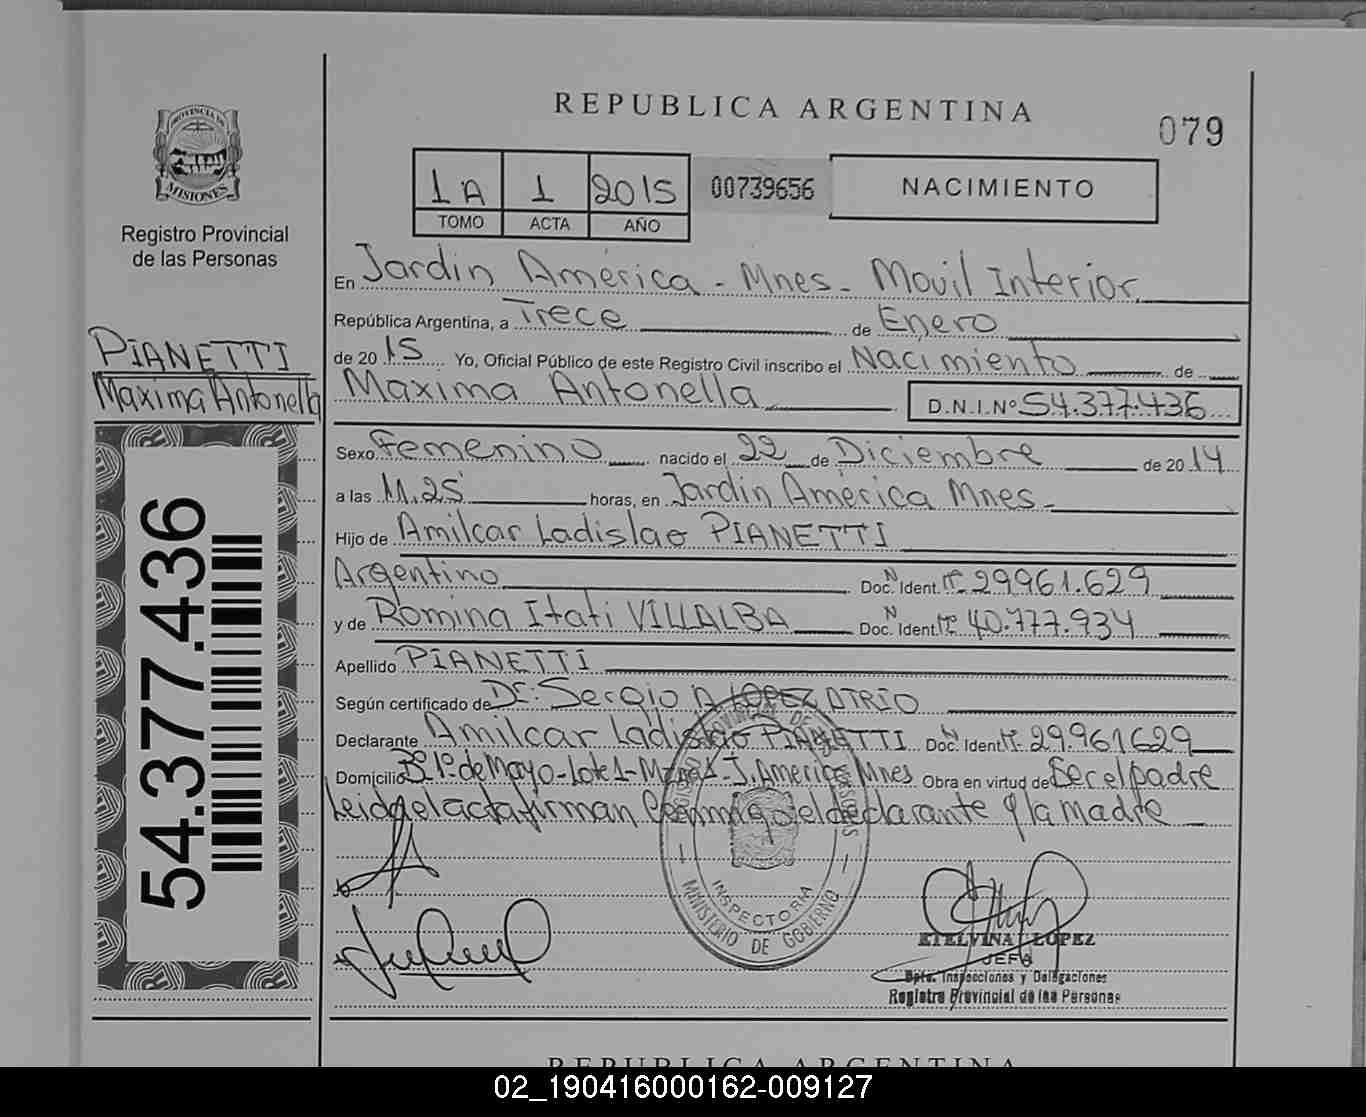 REPUBLICA ARGENTINA
079
PROVINCIA DE
MISIONES
Registro Provincial
de las Personas
1A 1 2015
TOMO ACTA AÑO
00739656
NACIMIENTO
En Jardin América - Mnes - Movil Interior
República Argentina, a Trece de Enero
de 2015 Yo, Oficial Público de este Registro Civil inscribo el Nacimiento de
PIANETTI
Maxima Antonella
Maxima Antonella D.N.I.Nº 54.377.436
Sexo Femenino nacido el 22 de Diciembre de 2014
a las 11.25 horas, en Jardin América Mnes-
Hijo de Amilcar Ladislao PIANETTI
Argentino Doc. Ident. Nº 29961.629
y de Romina Itati VILLALBA Doc. Ident. Nº 40.777.934
Apellido PIANETTI
Según certificado de Dr. Sergio A LOPEZ ATRIO
Declarante Amilcar Ladislao PIANETTI Doc. Ident. Nº 29.961629
Domicilio Bº 1º de Mayo - Lote 1 - J. America Mnes Obra en virtud de Ser el padre
Leida el acta firman Conmigo el declarante y la madre
54.377.436
PROVINCIA DE MISIONES
INSPECTORIA
MINISTERIO DE GOBIERNO
ETELVINA LOPEZ
JEFA
Dpto. Inspecciones y Delegaciones
Registro Provincial de las Personas
REPUBLICA ARGENTINA
02_190416000162-009127